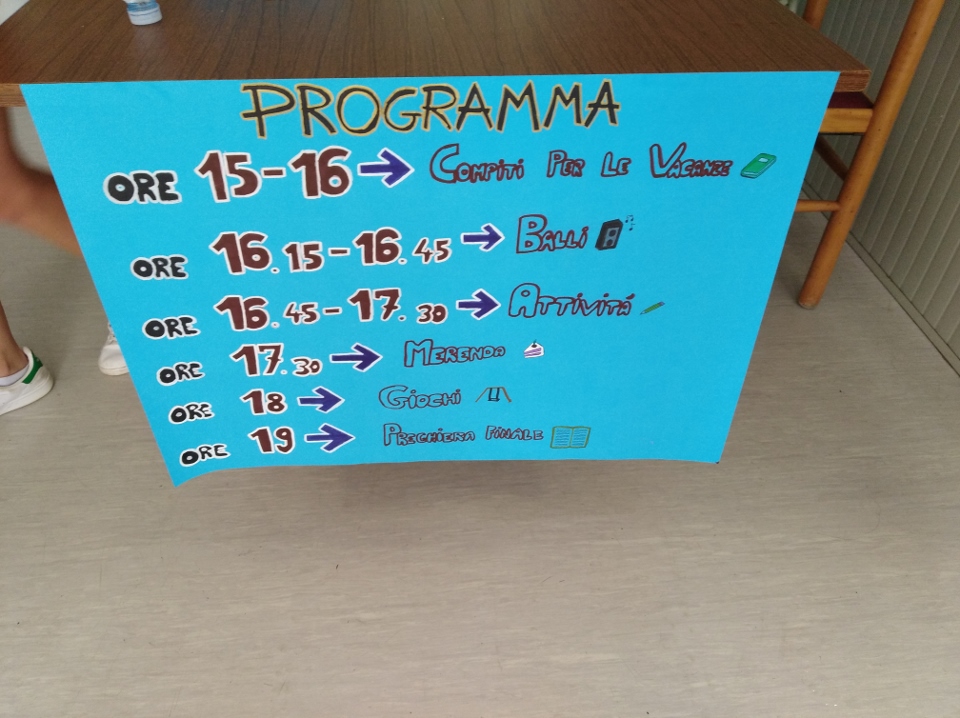 PROGRAMMA
ORE 15-16 → COMPITI PER LE VACANZE
ORE 16.15-16.45 → BALLI
ORE 16.45-17.30 → ATTIVITÁ
ORE 17.30 → MERENDA
ORE 18 → GIOCHI
ORE 19 → PREGHIERA FINALE